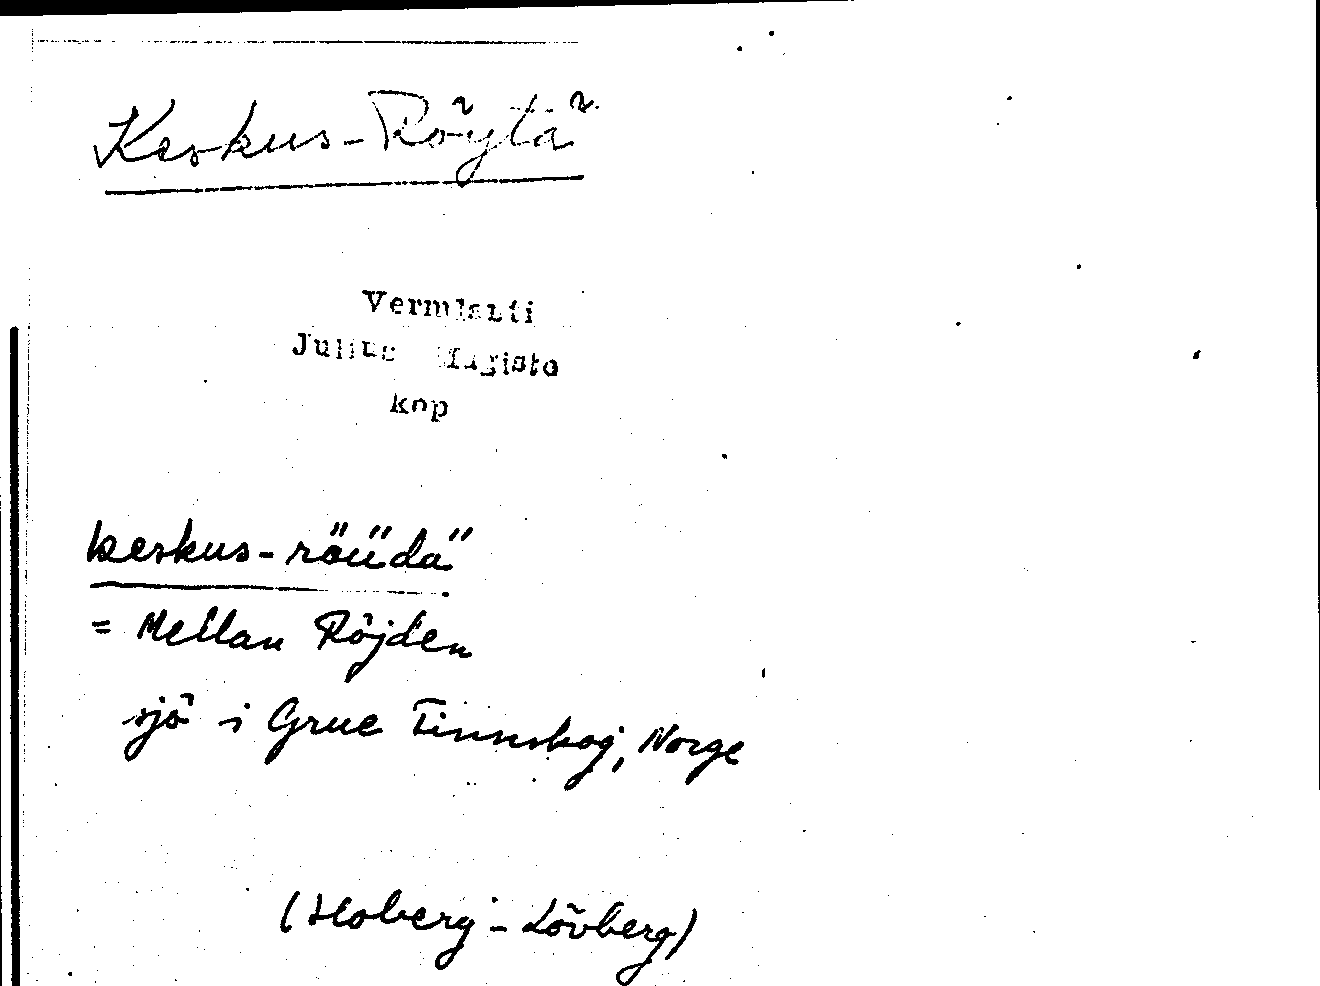 Keskus-Röytä
Vermlanti
Julius Mägiste
kop
keskus-röüdä
= Mellan Röjden
sjö i Grue Finnskog, Norge
(Hoberg - Lövberg)